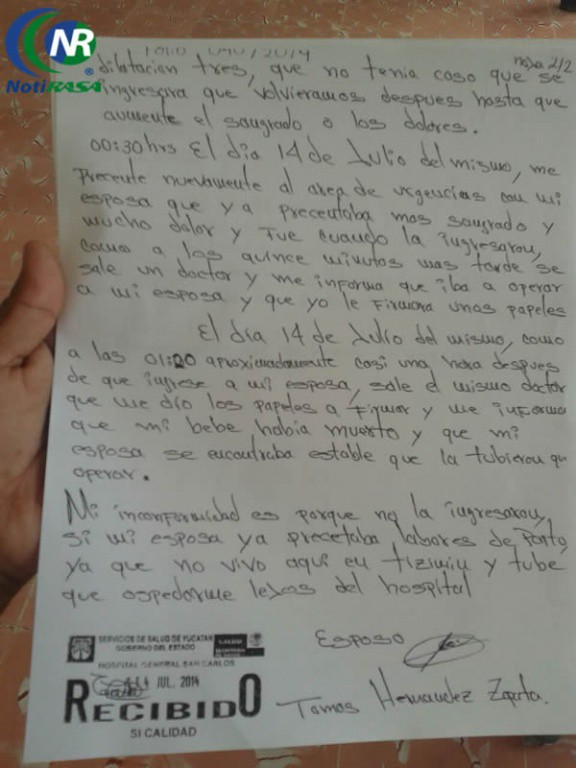 NR
®
NotiRASA
2014
hoja 2/2
dilatacion tres, que no tenia caso que se
ingresara que volvieramos despues hasta que
aumente el sangrado o los dolores.
00:30hrs El dia 14 de Julio del mismo, me
Precente nuevamente al area de urgencias con mi
esposa que ya precentaba mas sangrado y
mucho dolor y fue cuando la ingresaron,
como a los quince minutos mas tarde se
sale un doctor y me informa que iba a operar
a mi esposa y que yo le firmara unos papeles
El dia 14 de Julio del mismo, como
a las 01:20 aproximadamente casi una hora despues
de que ingrese a mi esposa, sale el mismo doctor
que me dio los papeles a firmar y me informa
que mi bebe habia muerto y que mi
esposa se encontraba estable que la tubieron que
operar.
Mi inconformidad es porque no la ingresaron,
si mi esposa ya precetaba labores de Parto,
ya que no vivo aqui en tizimin y tube
que ospedarme lexas del hospital
SERVICIOS DE SALUD DE YUCATAN
GOBIERNO DEL ESTADO
HOSPITAL GENERAL SAN CARLOS
14 JUL. 2014
RECIBIDO
SI CALIDAD
Esposo
Tomas Hernandez Zapata.